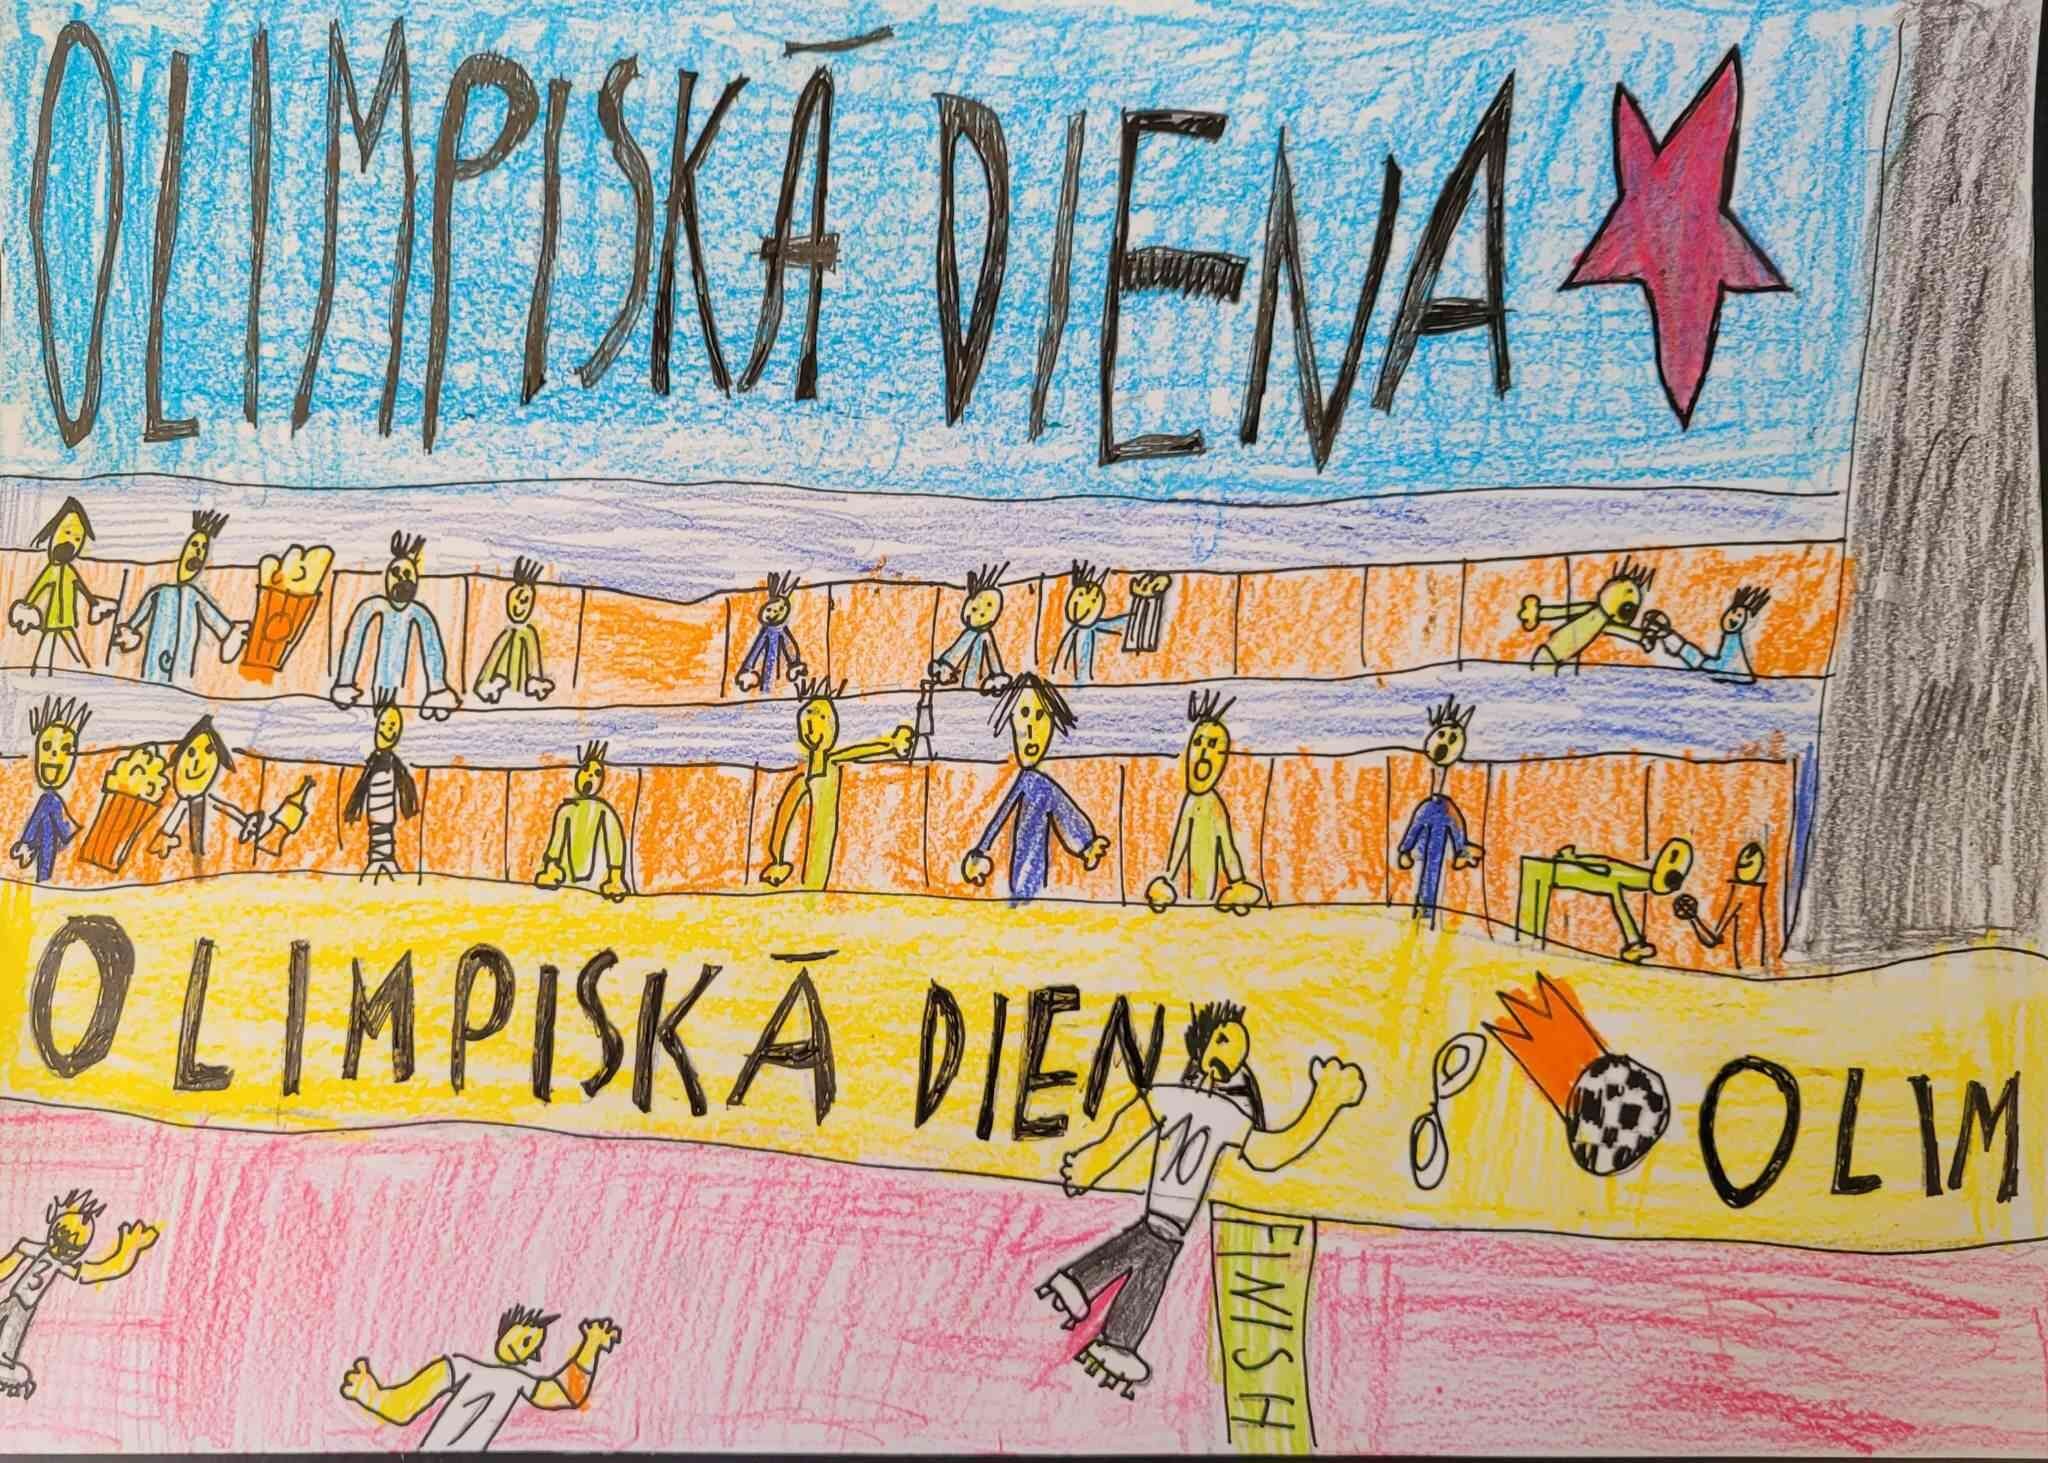 OLIMPISKĀ DIENA
OLIMPISKĀ DIEN OLIM
10
FINISH
3
1